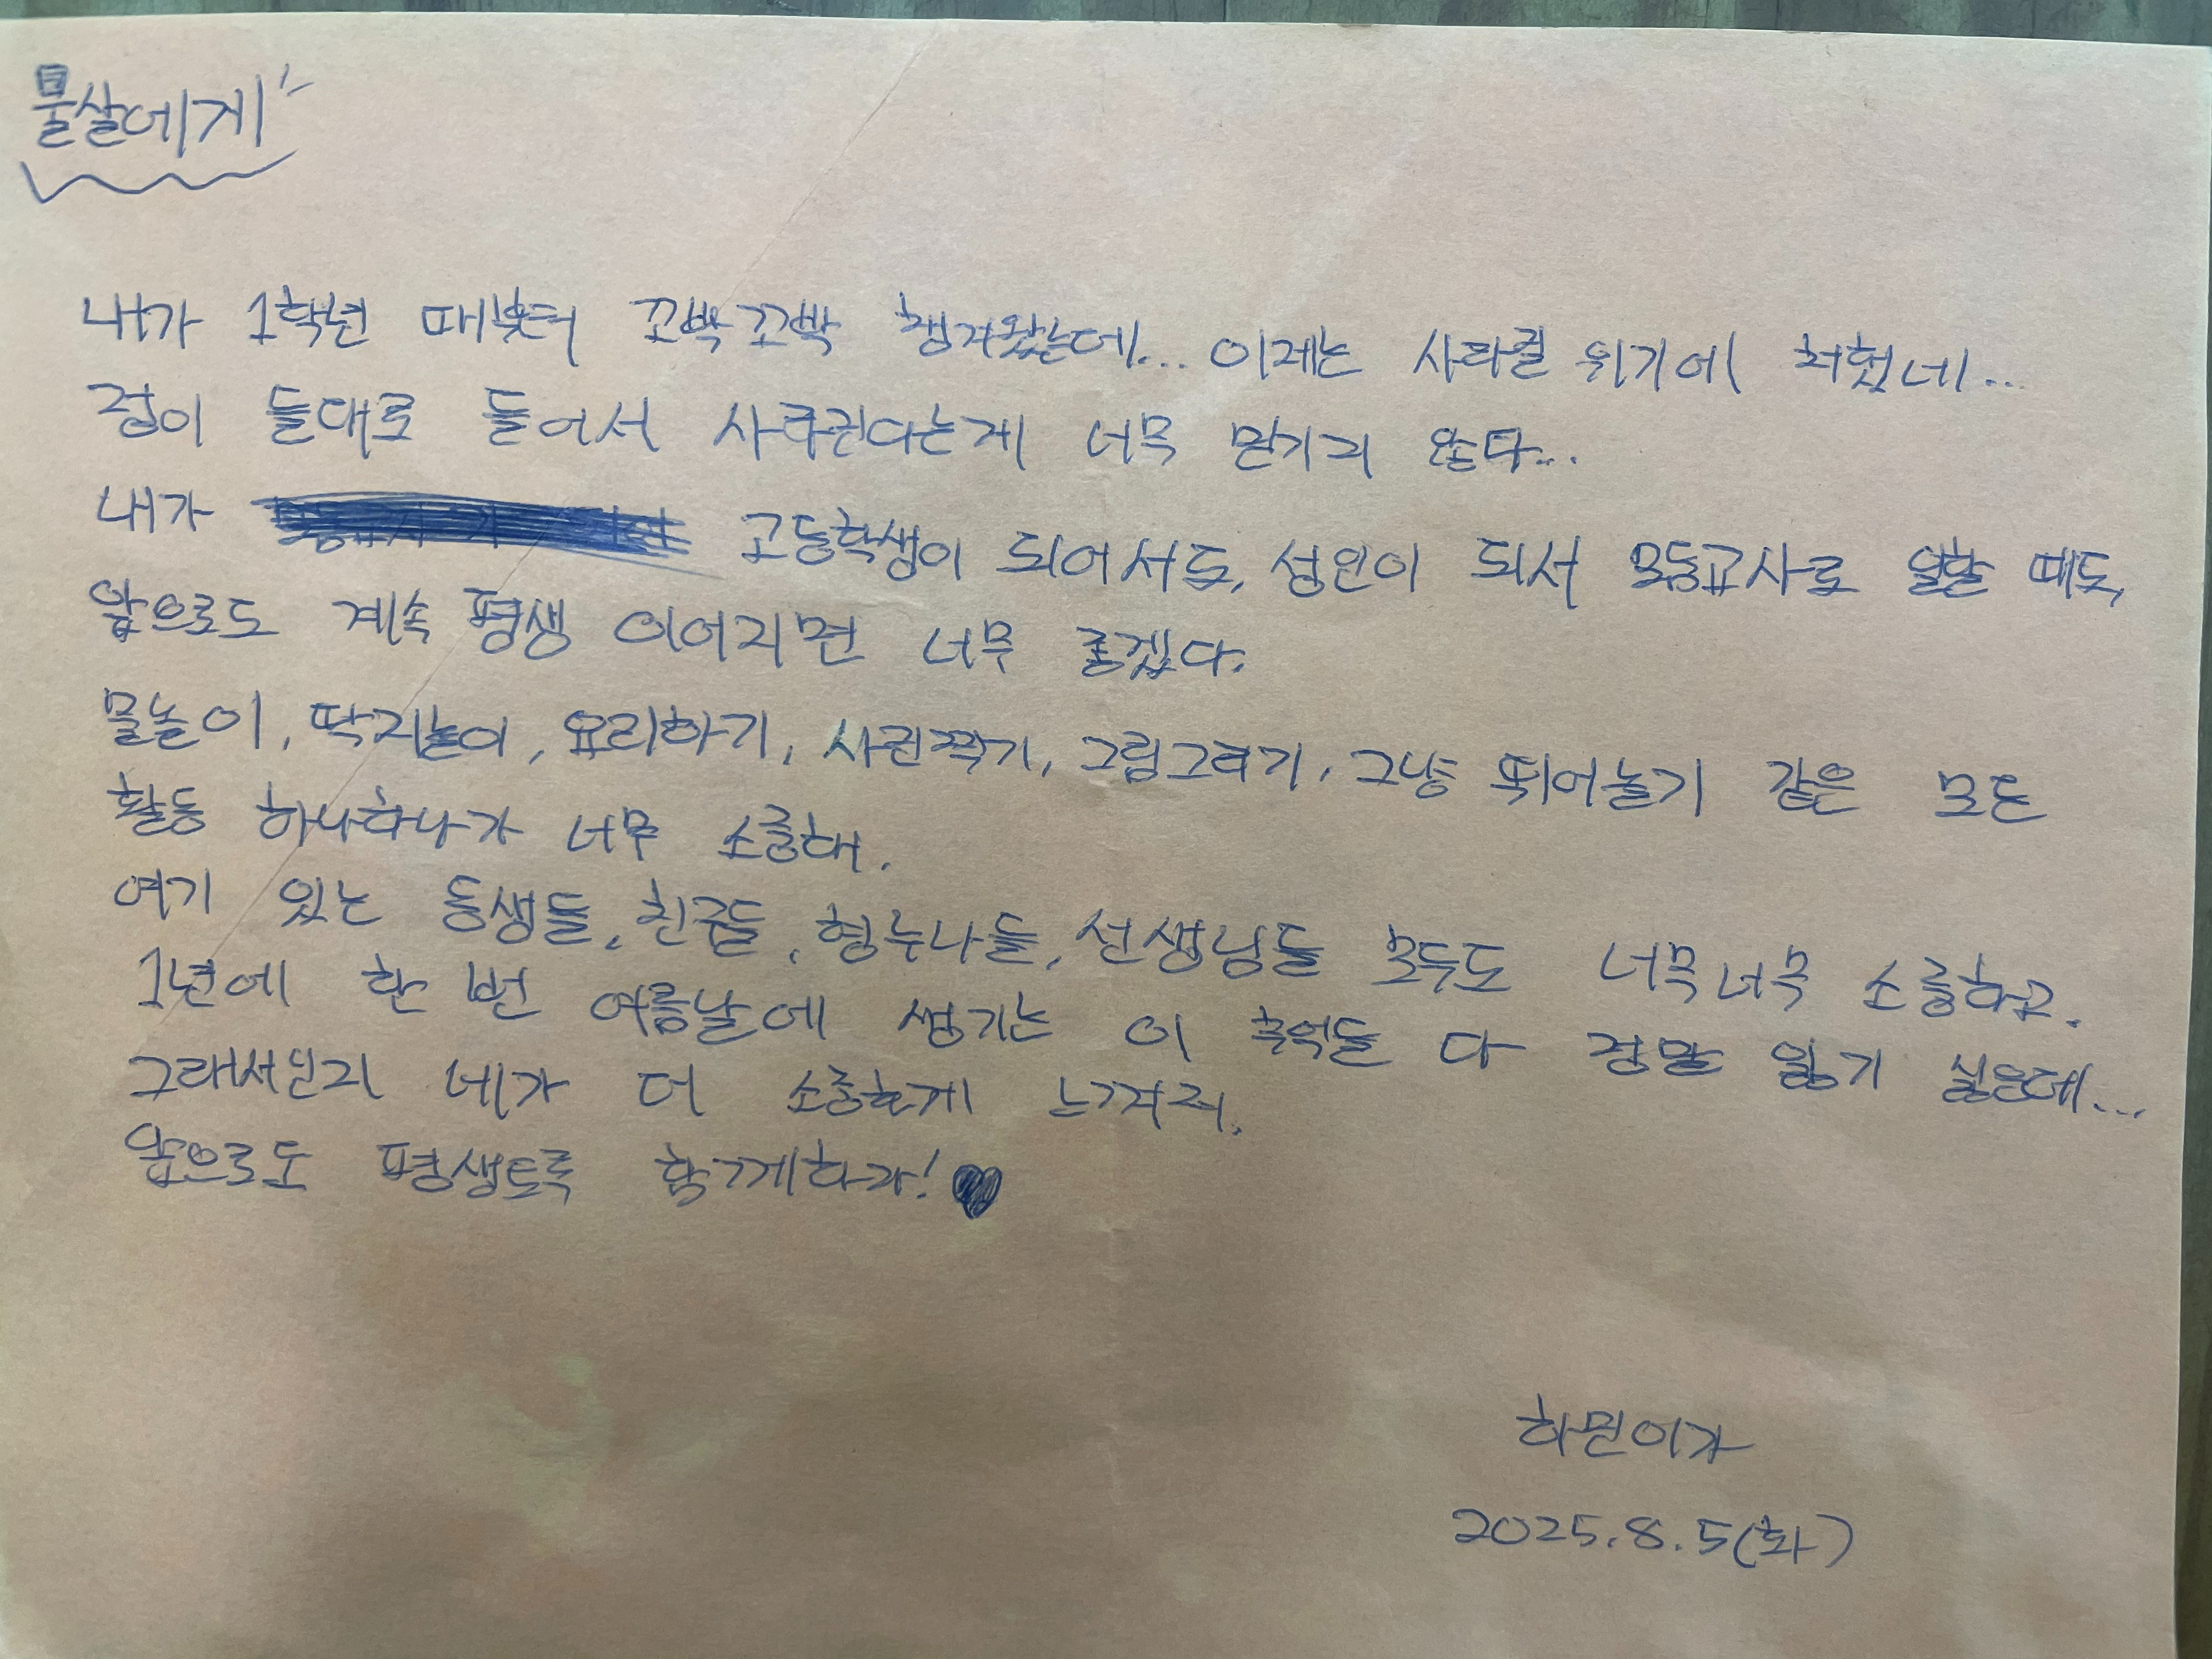 물살에게
내가 1학년 때부터 꼬박꼬박 챙겨왔는데... 이제는 사라질 위기에 처했네...
정이 들대로 들어서 사라진다는게 너무 믿기지 않다...
내가 고등학생이 되어서도, 성인이 되서 모둠교사로 일할 때도,
앞으로도 계속 평생 이어지면 너무 좋겠다.
물놀이, 딱지놀이, 요리하기, 사진찍기, 그림그리기, 그냥 뛰어놀기 같은 모든
활동 하나하나가 너무 소중해.
여기 있는 동생들, 친구들, 형누나들, 선생님들 모두도 너무너무 소중하고.
1년에 한 번 여름날에 생기는 이 추억들 다 정말 잃기 싫은데...
그래서인지 네가 더 소중하게 느껴져.
앞으로도 평생토록 함께하자!♥
하민이가
2025.8.5(화)